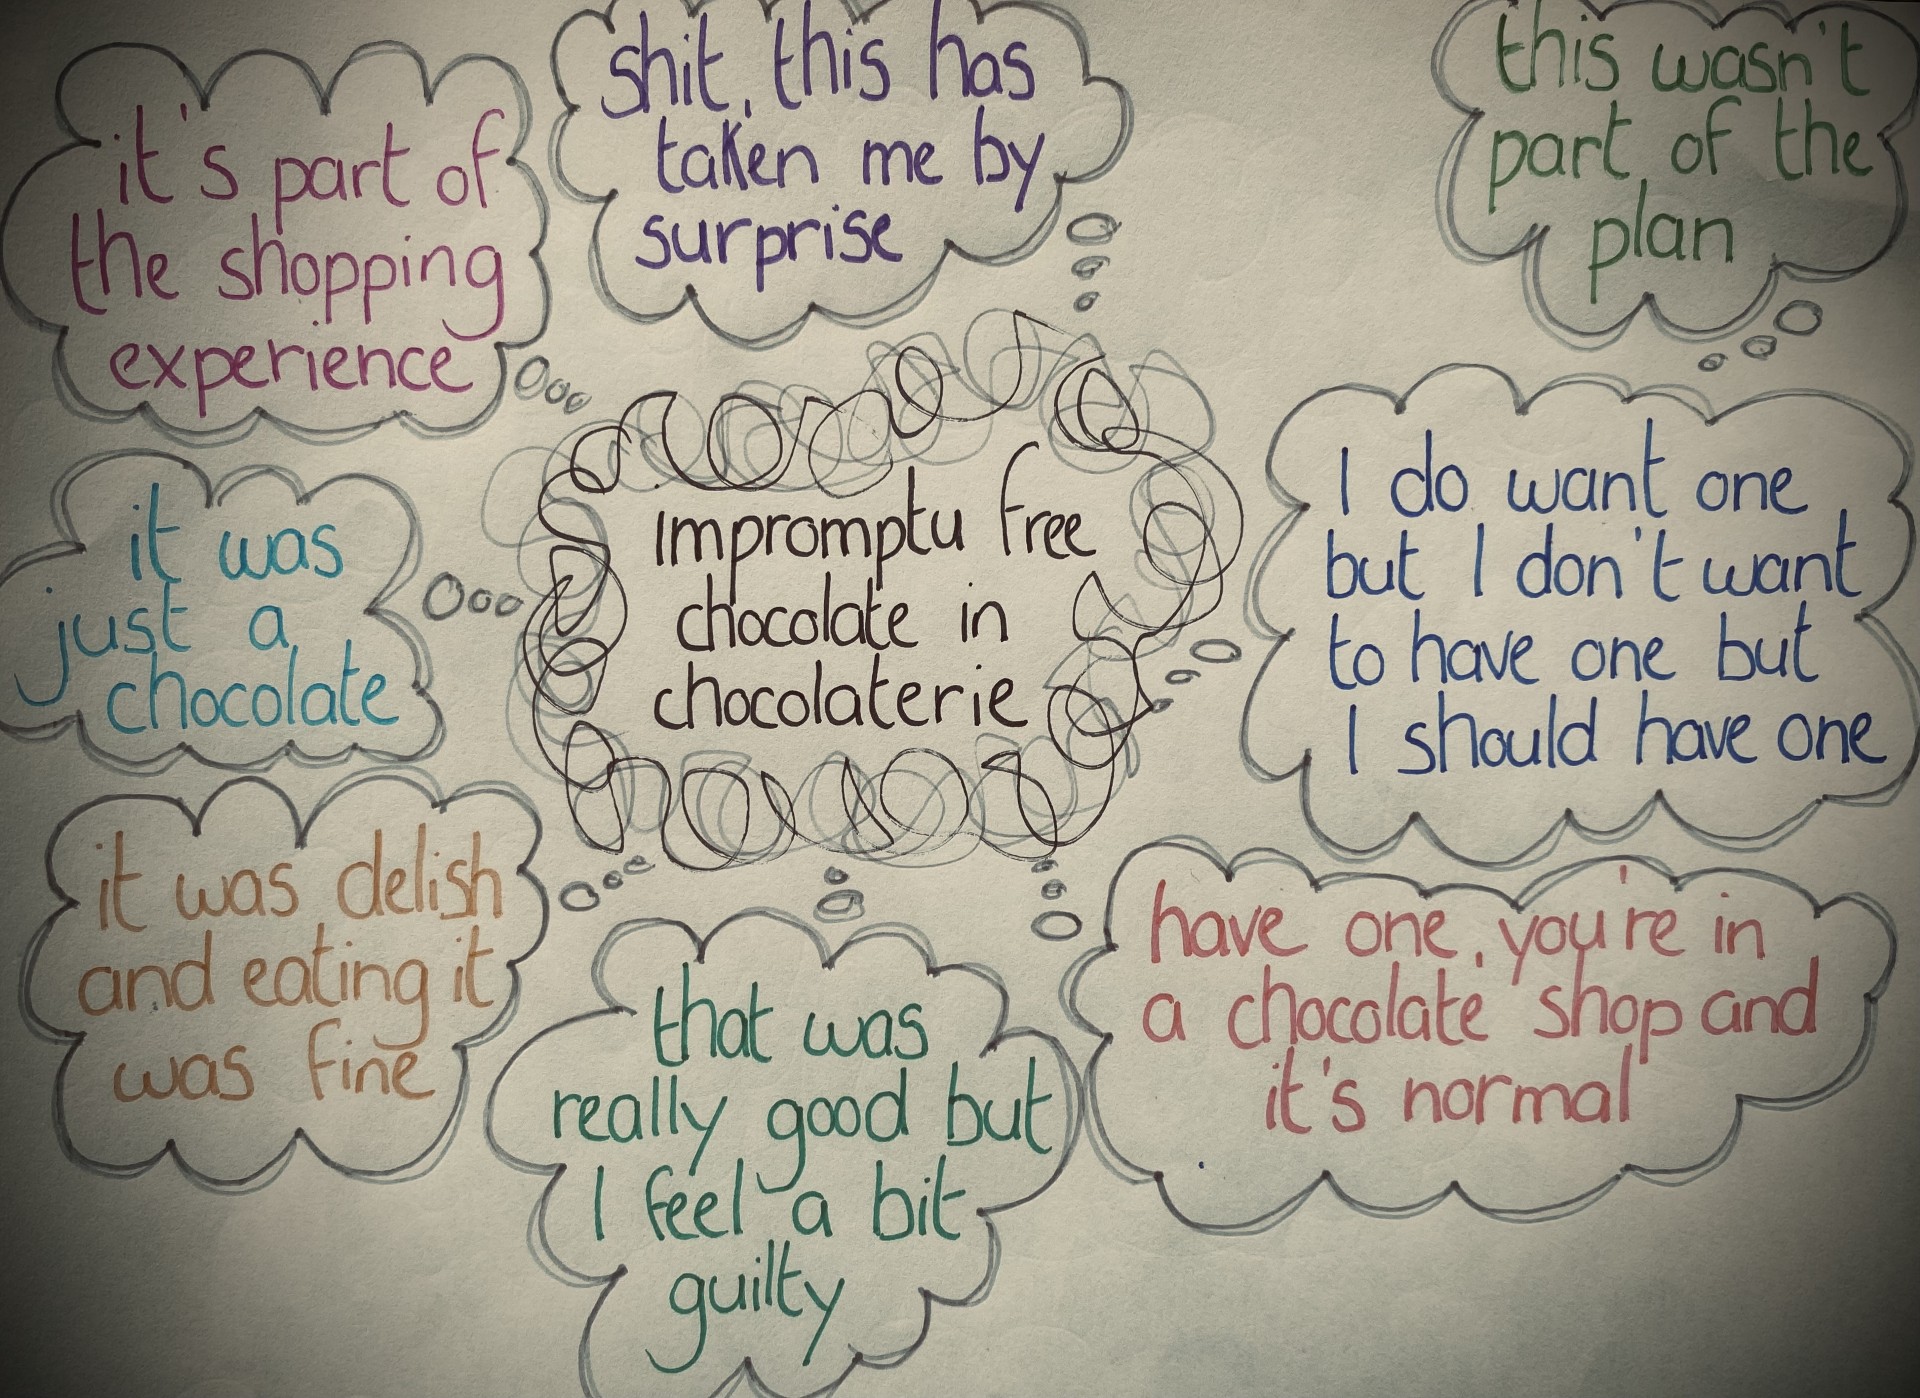 it's part of
the shopping
experience
shit, this has
taken me by
surprise
this wasn't
part of the
plan
it was
just a
chocolate
impromptu free
chocolate in
chocolaterie
I do want one
but I don't want
to have one but
I should have one
it was delish
and eating it
was fine
that was
really good but
I feel a bit
guilty
have one, you're in
a chocolate shop and
it's normal